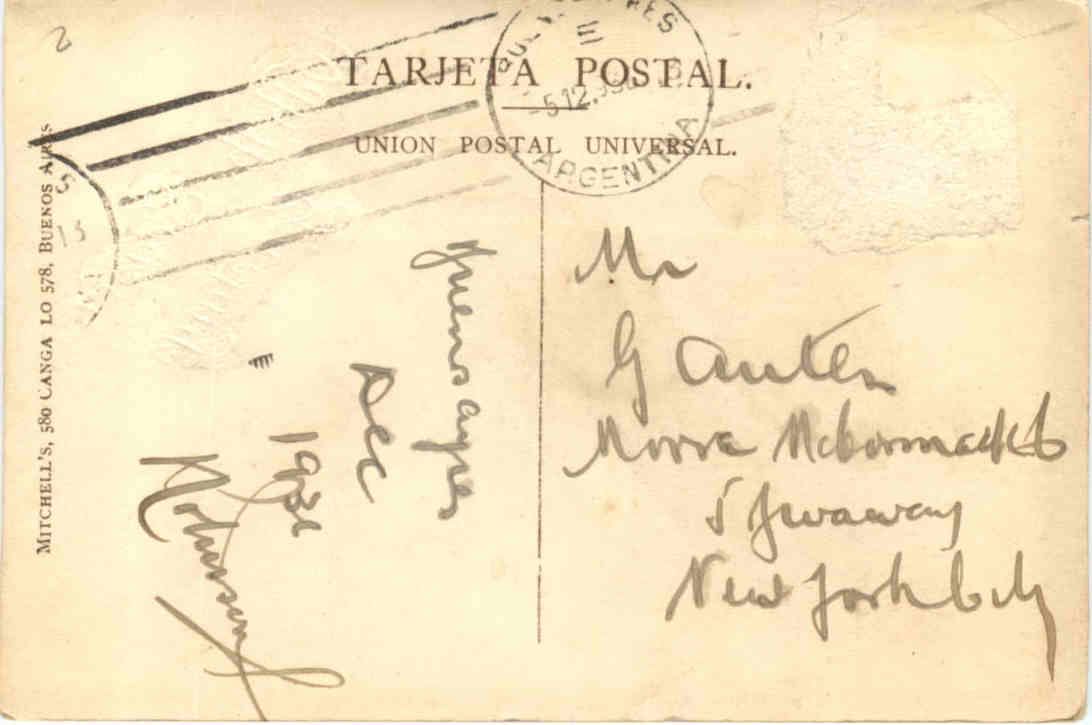 TARJETA POSTAL.
UNION POSTAL UNIVERSAL.
ARGENTINA
MITCHELL'S, 580 CANGALLO 578, BUENOS AIRES
Buenos ayres
Dec
193
Mr
G Auten
Moore McCormack
5 Browaway
New York City